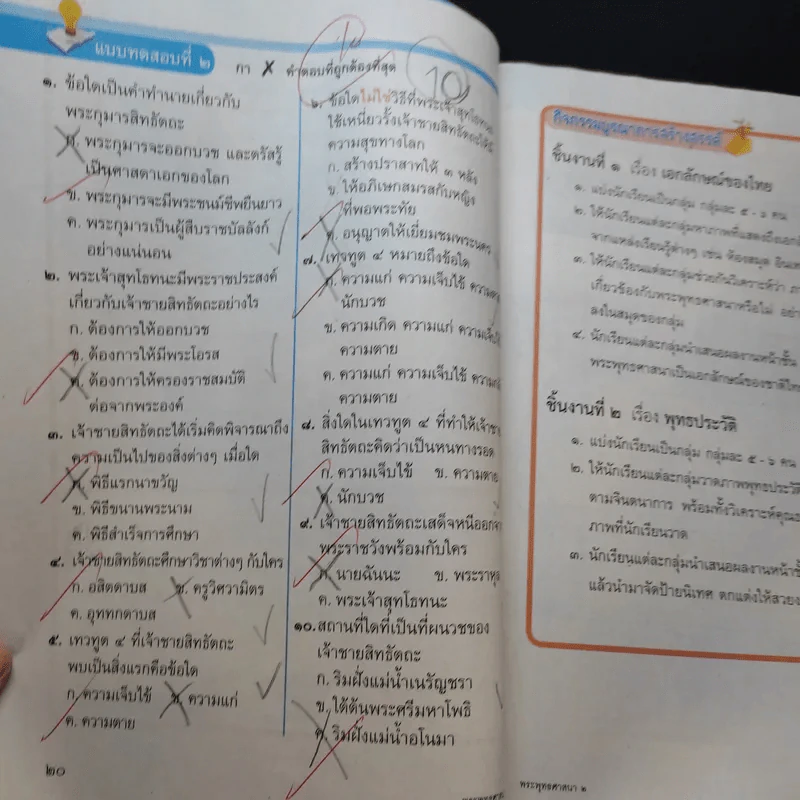 แบบทดสอบที่ ๒
กา X คำตอบที่ถูกต้องที่สุด
10
๑. ข้อใดเป็นคำทำนายเกี่ยวกับ
พระกุมารสิทธัตถะ
ก. พระกุมารจะออกบวช และตรัสรู้
เป็นศาสดาเอกของโลก
ข. พระกุมารจะมีพระชนม์ชีพยืนยาว
ค. พระกุมารเป็นผู้สืบราชบัลลังก์
อย่างแน่นอน
๒. พระเจ้าสุทโธทนะมีพระราชประสงค์
เกี่ยวกับเจ้าชายสิทธัตถะอย่างไร
ก. ต้องการให้ออกบวช
ข. ต้องการให้มีพระโอรส
ค. ต้องการให้ครองราชสมบัติ
ต่อจากพระองค์
๓. เจ้าชายสิทธัตถะได้เริ่มคิดพิจารณาถึง
ความเป็นไปของสิ่งต่างๆ เมื่อใด
ก. พิธีแรกนาขวัญ
ข. พิธีขนานพระนาม
ค. พิธีสำเร็จการศึกษา
๔. เจ้าชายสิทธัตถะศึกษาวิชาต่างๆ กับใคร
ก. อสิตดาบส ข. ครูวิศวามิตร
ค. อุททกดาบส
๕. เทวทูต ๔ ที่เจ้าชายสิทธัตถะ
พบเป็นสิ่งแรกคือข้อใด
ก. ความเจ็บไข้ ข. ความแก่
ค. ความตาย
๒๐
๖. ข้อใดไม่ใช่วิธีที่พระเจ้าสุทโธทนะ
ใช้เหนี่ยวรั้งเจ้าชายสิทธัตถะให้มี
ความสุขทางโลก
ก. สร้างปราสาทให้ ๓ หลัง
ข. ให้อภิเษกสมรสกับหญิง
ที่พอพระทัย
ค. อนุญาตให้เยี่ยมชมพระนคร
๗. เทวทูต ๔ หมายถึงข้อใด
ก. ความแก่ ความเจ็บไข้ ความตาย
นักบวช
ข. ความเกิด ความแก่ ความเจ็บไข้
ความตาย
ค. ความแก่ ความเจ็บไข้
ความตาย
๘. สิ่งใดในเทวทูต ๔ ที่ทำให้เจ้าชาย
สิทธัตถะคิดว่าเป็นหนทางรอด
ก. ความเจ็บไข้ ข. ความตาย
ค. นักบวช
๙. เจ้าชายสิทธัตถะเสด็จหนีออกจาก
พระราชวังพร้อมกับใคร
ก. นายฉันนะ ข. พระราหุล
ค. พระเจ้าสุทโธทนะ
๑๐. สถานที่ใดที่เป็นที่ผนวชของ
เจ้าชายสิทธัตถะ
ก. ริมฝั่งแม่น้ำเนรัญชรา
ข. ใต้ต้นพระศรีมหาโพธิ
ค. ริมฝั่งแม่น้ำอโนมา
กิจกรรมบูรณาการสร้างสรรค์
ชิ้นงานที่ ๑ เรื่อง เอกลักษณ์ของไทย
๑. แบ่งนักเรียนเป็นกลุ่ม กลุ่มละ ๕ - ๖ คน
๒. ให้นักเรียนแต่ละกลุ่มหาภาพที่แสดงถึงเอกลั
จากแหล่งเรียนรู้ต่างๆ เช่น ห้องสมุด อินเท
๓. ให้นักเรียนแต่ละกลุ่มช่วยกันวิเคราะห์ว่า ภา
เกี่ยวข้องกับพระพุทธศาสนาหรือไม่ อย่าง
ลงในสมุดของกลุ่ม
๔. นักเรียนแต่ละกลุ่มนำเสนอผลงานหน้าชั้น
พระพุทธศาสนาเป็นเอกลักษณ์ของชาติไทย
ชิ้นงานที่ ๒ เรื่อง พุทธประวัติ
๑. แบ่งนักเรียนเป็นกลุ่ม กลุ่มละ ๕ - ๖ คน
๒. ให้นักเรียนแต่ละกลุ่มวาดภาพพุทธประวัติ
ตามจินตนาการ พร้อมทั้งวิเคราะห์คุณธ
ภาพที่นักเรียนวาด
๓. นักเรียนแต่ละกลุ่มนำเสนอผลงานหน้าชั้
แล้วนำมาจัดป้ายนิเทศ ตกแต่งให้สวยง
พระพุทธศาสนา ๒